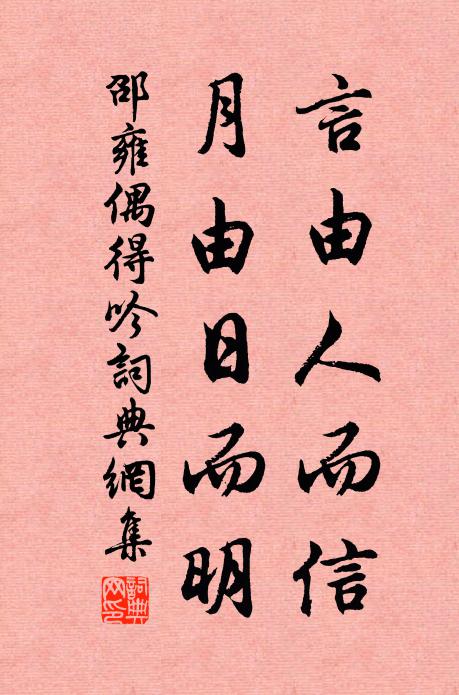 言由人而信
月由日而明
邵雍偶得吟詞典網集
詞典網印